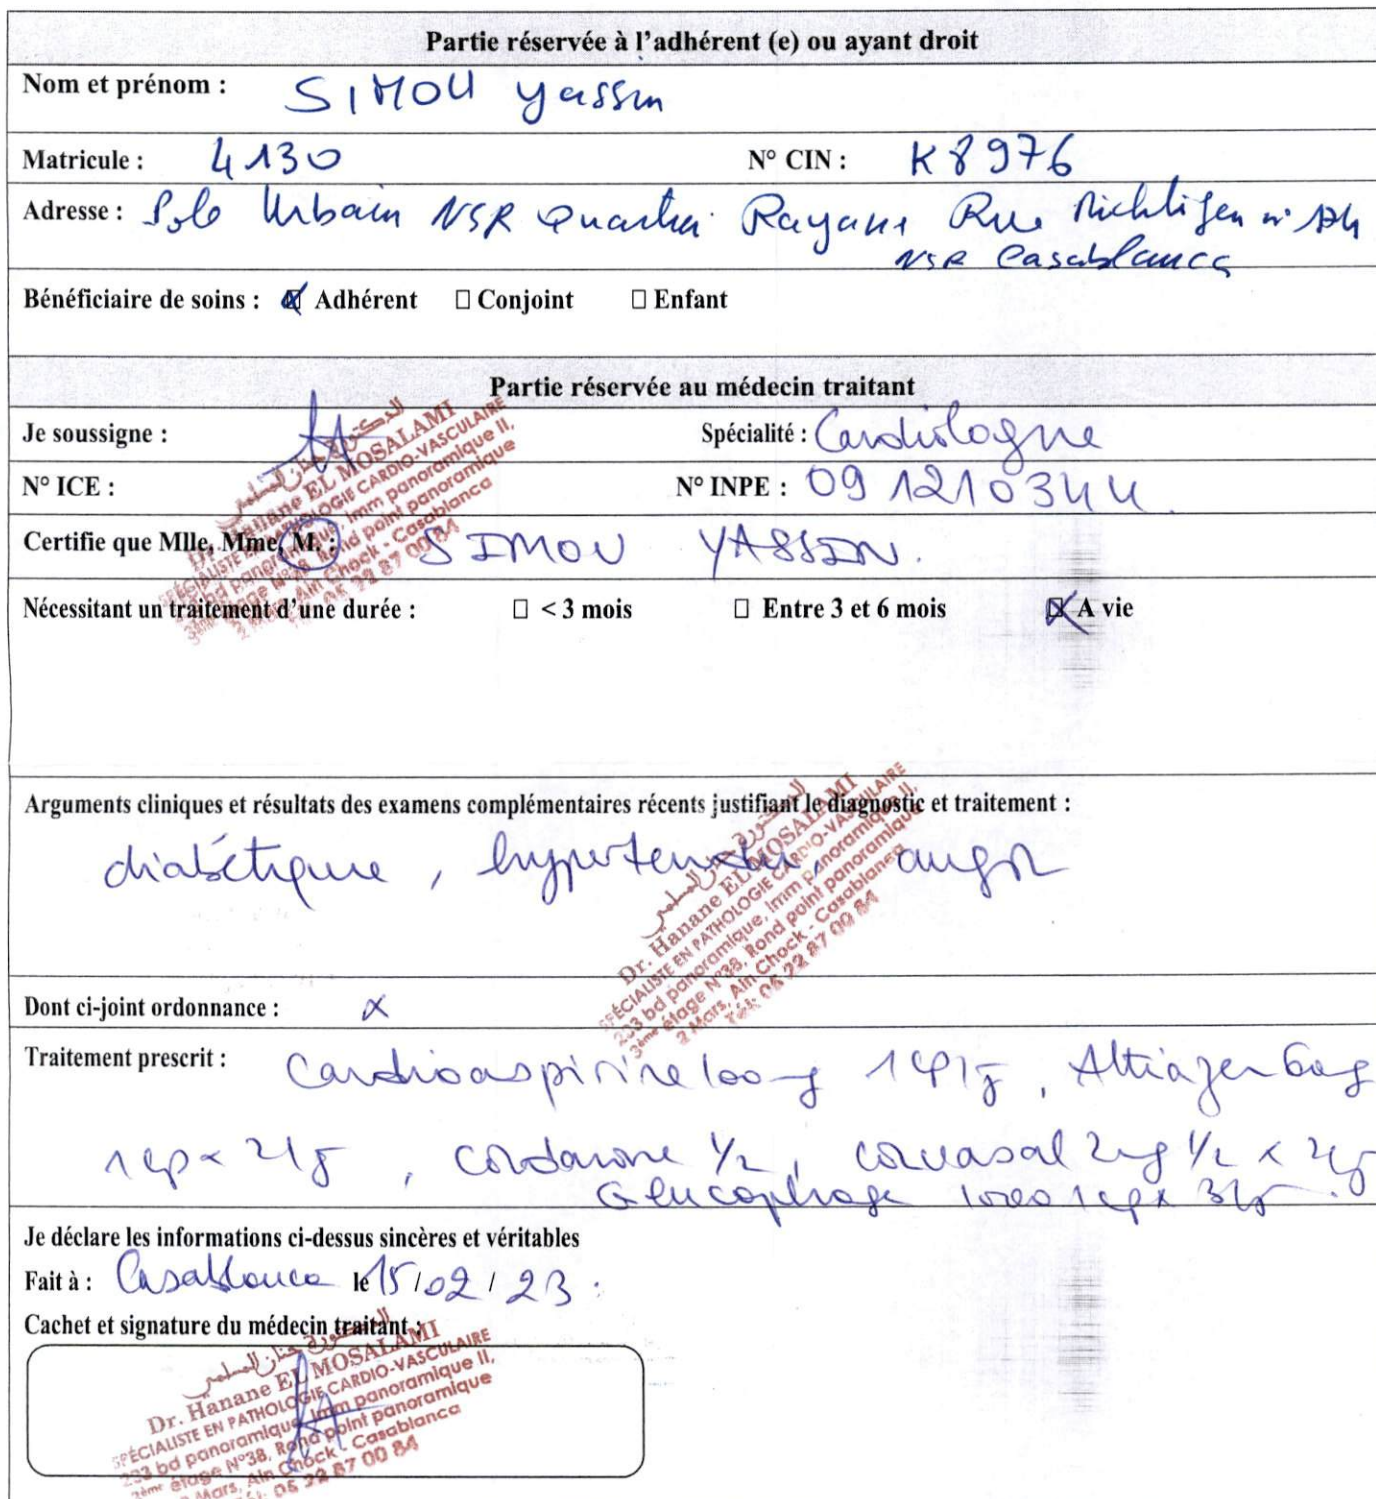 Partie réservée à l'adhérent (e) ou ayant droit
Nom et prénom : SIMOU Yassin
Matricule : 4130 N° CIN : K8976
Adresse : Pole Urbain NSR Quartier Rayane Rue n°
NSR Casablanca
Bénéficiaire de soins : ☒ Adhérent ☐ Conjoint ☐ Enfant
Partie réservée au médecin traitant
Je soussigne : Spécialité : Cardiologue
N° ICE : N° INPE : 091210344
Certifie que Mlle, Mme, M. : SIMOU YASSIN.
Nécessitant un traitement d'une durée : ☐ < 3 mois ☐ Entre 3 et 6 mois ☒ A vie
الدكتورة حنان المسلمي
Dr. Hanane EL MOSALAMI
SPÉCIALISTE EN PATHOLOGIE CARDIO-VASCULAIRE
233 bd panoramique, Imm panoramique II,
3ème étage N°38, Rond point panoramique
2 Mars, Ain Chock - Casablanca
Tél: 05 22 87 00 84
Arguments cliniques et résultats des examens complémentaires récents justifiant le diagnostic et traitement :
diabétique, hypertendu, angor
الدكتورة حنان المسلمي
Dr. Hanane EL MOSALAMI
SPÉCIALISTE EN PATHOLOGIE CARDIO-VASCULAIRE
233 bd panoramique, Imm panoramique II,
3ème étage N°38, Rond point panoramique
2 Mars, Ain Chock - Casablanca
Tél: 05 22 87 00 84
Dont ci-joint ordonnance : x
Traitement prescrit : Cardioaspirine 100mg 1cp/j, Altiazem 60mg
1cp x 2/j, cordarone 1/2, corvasal 2mg 1/2 x 2/j
Glucophage 1000 1cp x 3/j.
Je déclare les informations ci-dessus sincères et véritables
Fait à : Casablanca le 15/02/23
Cachet et signature du médecin traitant :
الدكتورة حنان المسلمي
Dr. Hanane EL MOSALAMI
SPÉCIALISTE EN PATHOLOGIE CARDIO-VASCULAIRE
233 bd panoramique, Imm panoramique II,
3ème étage N°38, Rond point panoramique
2 Mars, Ain Chock - Casablanca
Tél: 05 22 87 00 84